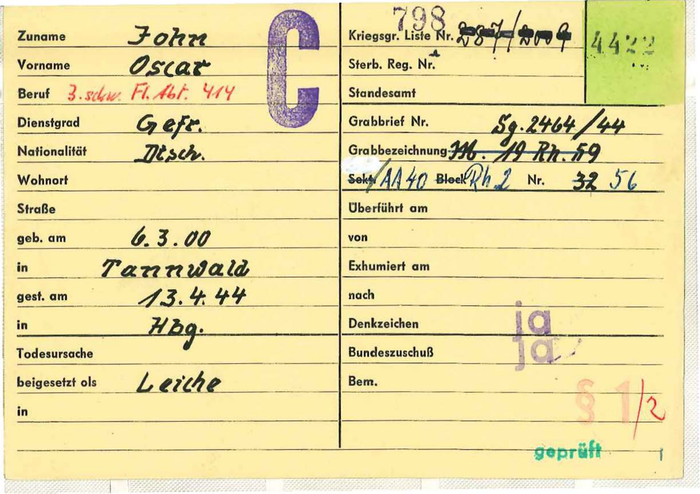 Zuname John
Vorname Oscar
Beruf 3. schw. Fl. Abt. 414
Dienstgrad Gefr.
Nationalität Dtsch.
Wohnort
Straße
geb. am 6.3.00
in Tannwald
gest. am 13.4.44
in Hbg.
Todesursache
beigesetzt als Leiche
in
C
798
Kriegsgr. Liste Nr. 287/2009
4422
Sterb. Reg. Nr.
Standesamt
Grabbrief Nr. Sg. 2464/44
Grabbezeichnung 19 Rh. 59
Sekt. / AA40 Block Rh 2 Nr. 32 56
Überführt am
von
Exhumiert am
nach
Denkzeichen ja
Bundeszuschuß ja
Bem.
§ 1/2
geprüft